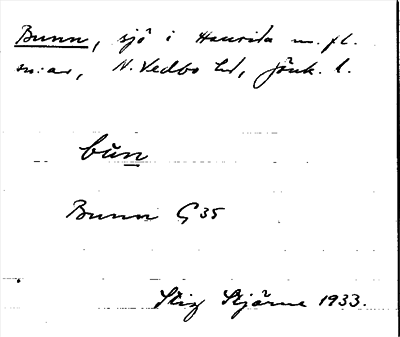 Bunn, sjö i Haurida m. fl.
sn:ar, N. Vedbo hd, Jönk. l.
bŭn
Bunn G 35
Stig Stjärne 1933.